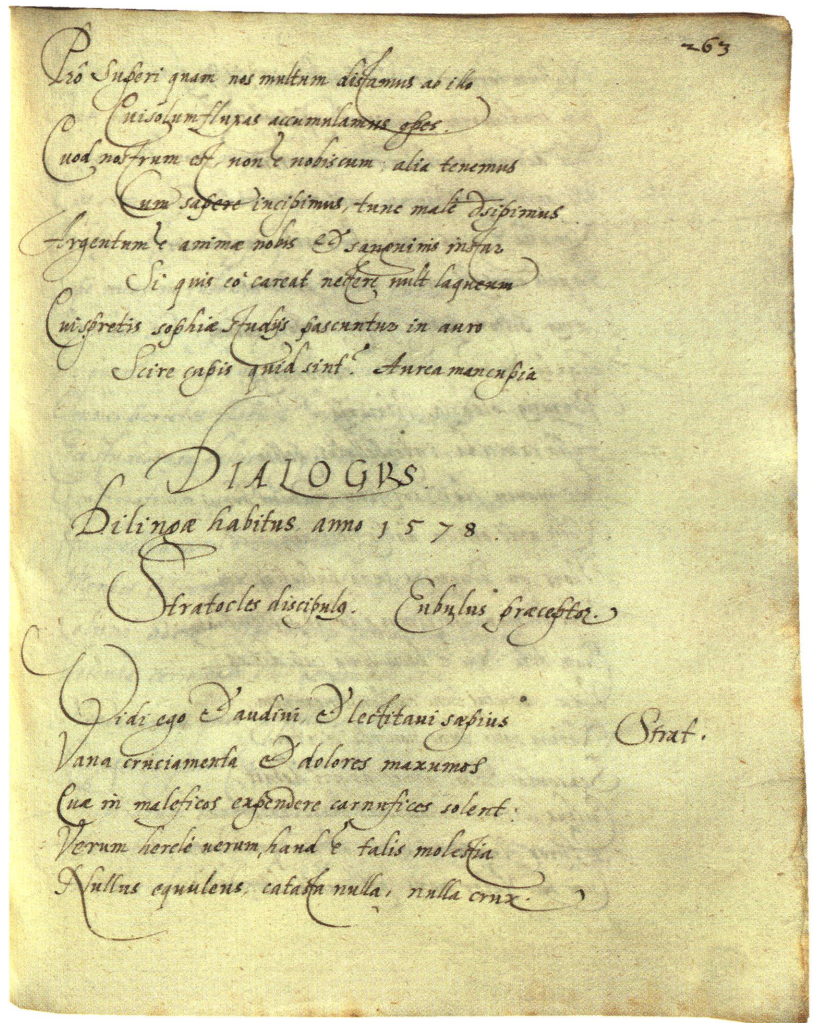 263
Prô Superi quam nos multum distamus ab illo
Qui solum fluxas accumulamus opes.
Quod nostrum est, non ẽ nobiscum, alia tenemus
Cum sapere incipimus, tunc malè dsipimus
Argentum ẽ animæ nobis & sanguinis instar
Si quis eô careat nectere vult laqueum
Qui spretis sophiæ studijs pascuntur in auro
Scire cupis quid sint? Aurea mancupia
DIALOGVS.
Dilingæ habitus anno 1578.
Stratocles discipulꝰ. Eubulus præceptor.
Vidi ego & audiui, & lectitaui sæpius
Strat.
Vana cruciamenta & dolores maxumos
Quæ in maleficos expendere carnufices solent:
Verum herclè uerum, haud ẽ talis molestia
Nullus equuleus, catasta nulla, nulla crux.